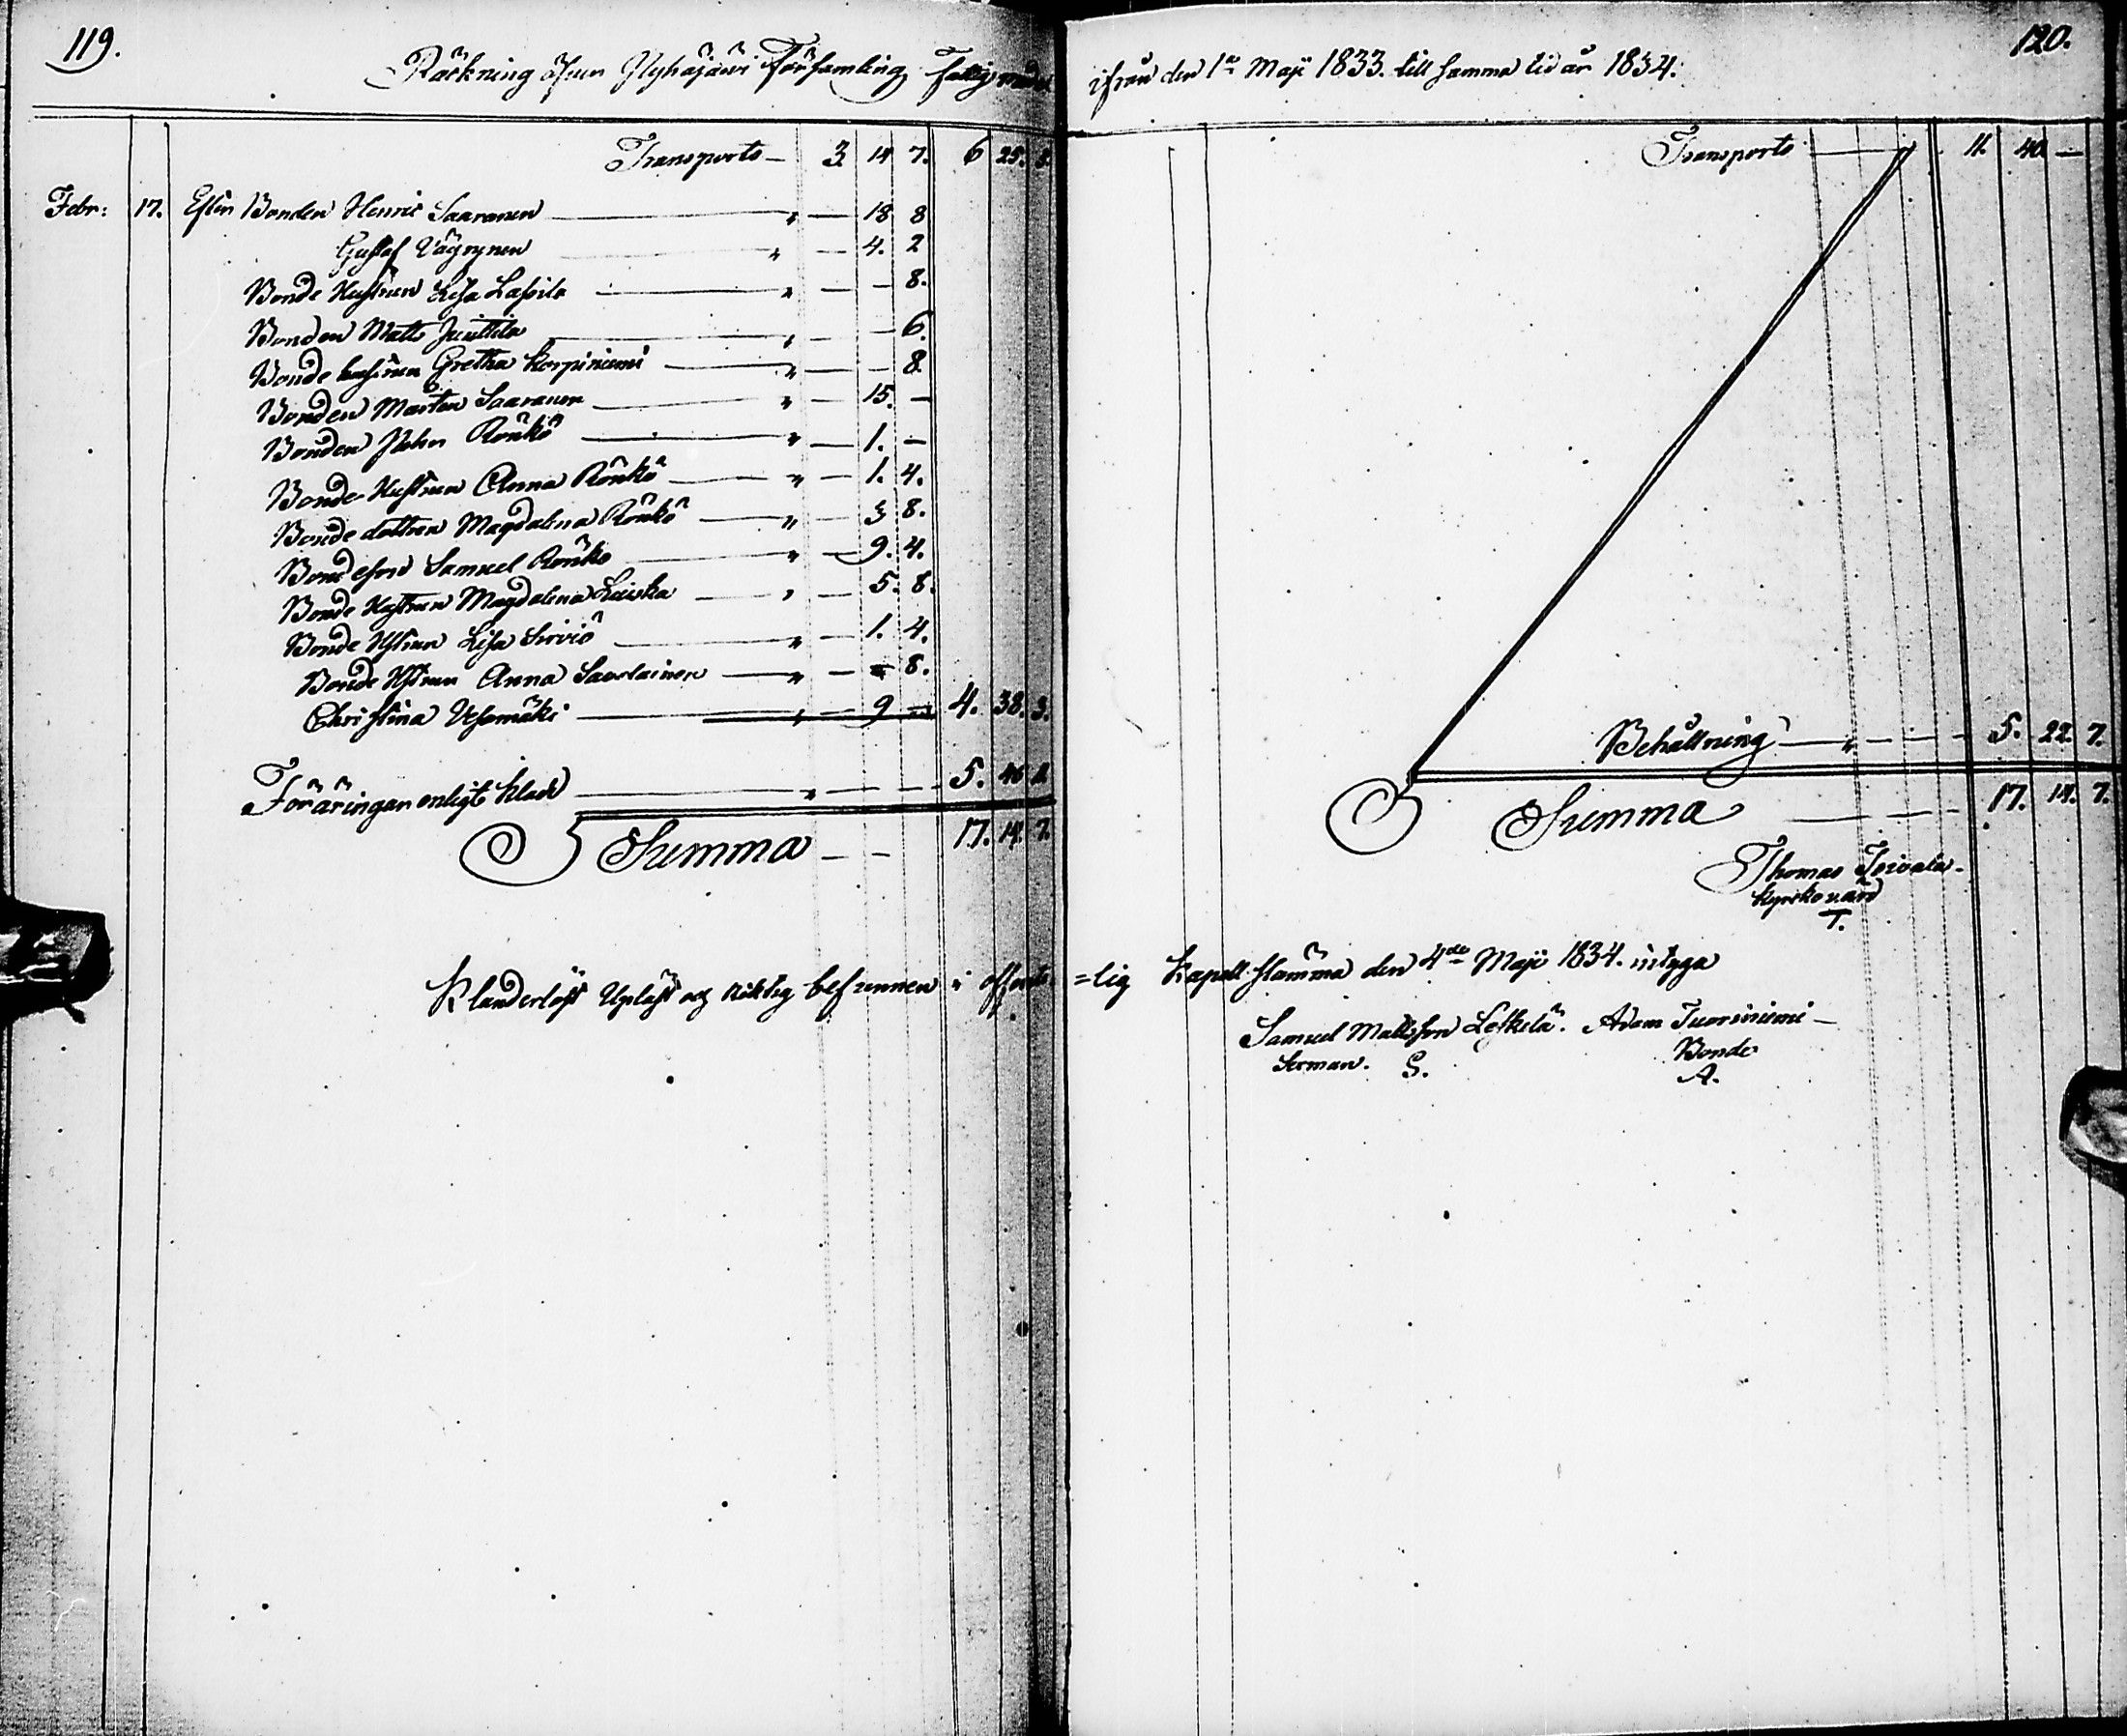 119.
Räkning öfver Pyhäjärvi Församlings Fattig medel
Transporto — 3 14 7. 6 25. 8.
Febr: 17. Efter Bonden Henric Saaranen — " — 18 8
Gustaf Väyrynen — " — 4. 2
Bonde Hustrun Lisa Lassila — " — — 8.
Bonden Matts Junttila — " — — 6.
Bonde hustrun Gretha Korpiniemi — " — — 8.
Bonden Mårten Saaranen — " — 15. —
Bonden John Rönkö — " — 1. —
Bonde-Hustrun Anna Rönkö — " — 1. 4.
Bonde dottren Magdalena Rönkö — " — 3 8.
Bondeson Samuel Rönkö — " — 9. 4.
Bonde Hustrun Magdalena Leiska — " — 5. 8.
Bonde Hstrun Lisa Sirviö — " — 1. 4.
Bonde Hstrun Anna Savolainen — " — — 8.
Christina Vesomäki — " — 9 — 4. 38. 3.
Föräringar enligt Klad — " — — 5. 46 8.
Summa — — 17. 14. 7.
Klanderlöst Upläst och riktig befunnen i offent=
120.
ifrån den 1a Maji 1833. till samma tid år 1834.
Transporto — 11. 40. —
Behållning — " — — 5. 22. 7.
Summa — — 17. 14. 7.
Thomas
Kyrkovärd
T.
=lig Kapell stämma den 4de Maji 1834. intyga
Samuel Mattsson Leskelä. Adam Tuoriniemi —
Sexman. S. Bonde
A.